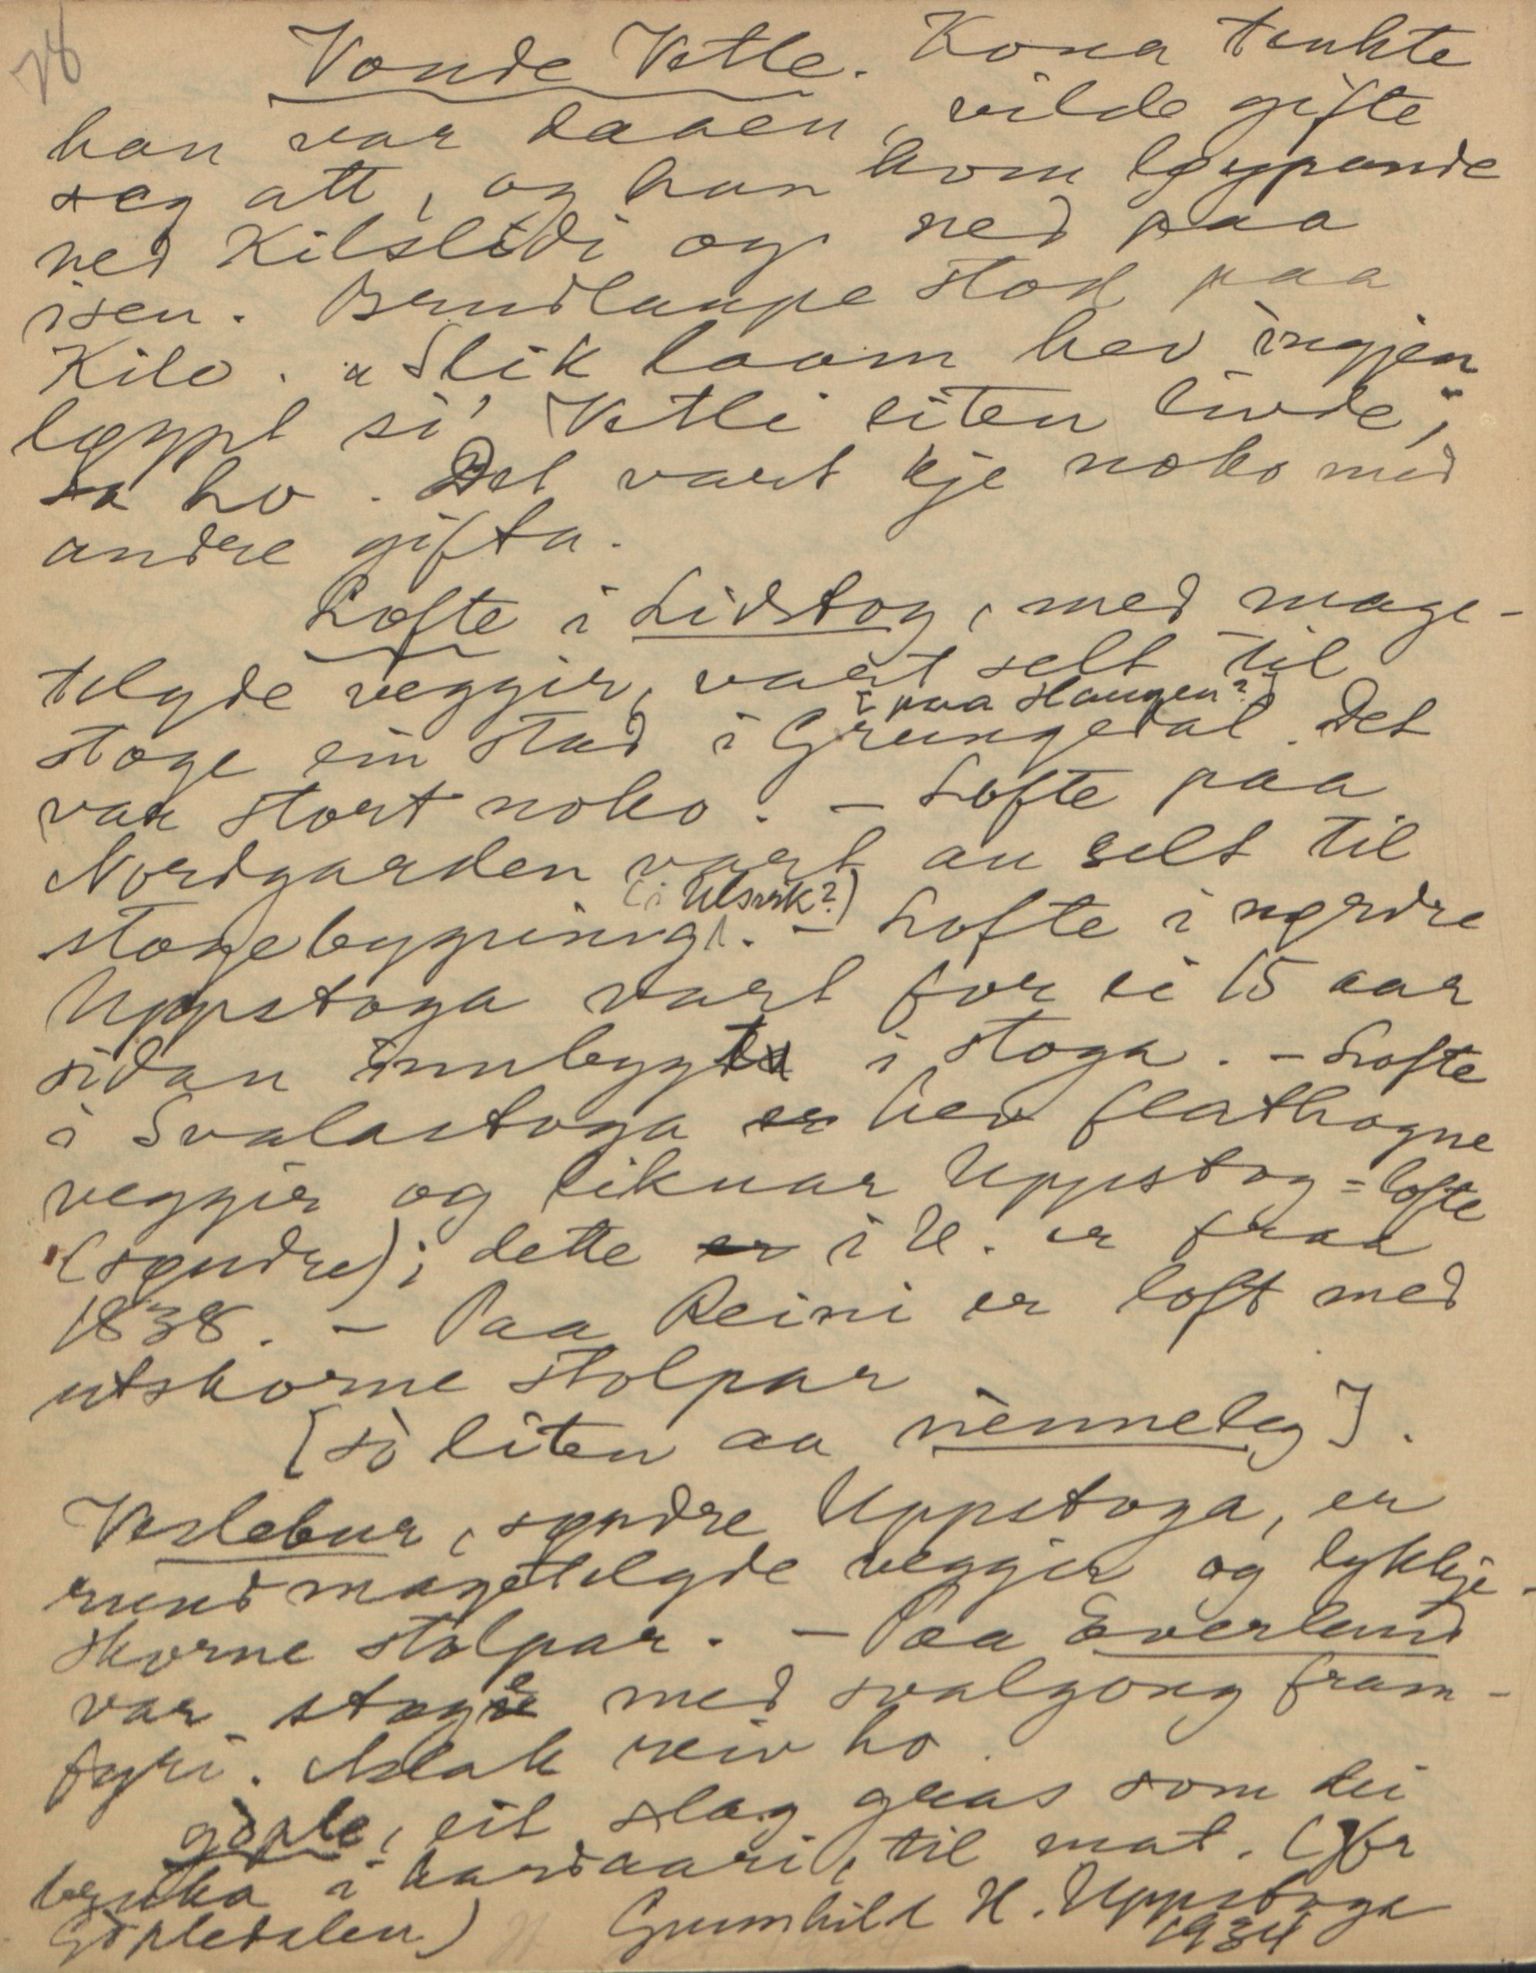 28
Vonde Vetle. Kona tenkte
han var daaen, vilde gifte
seg att, og han kom løypande
ned Kilslidi og ned paa
isen. Brudlaupe stod paa
Kilo. "Slik laom hev ingjen
løypt si' Vetli liten livde",
sa ho. Det vart kje noko med
andre gifta.
Lofte i Lidstog, med mage-
telgde veggjir, vart selt til
i paa Haugen?
stoge ein stad i Grungedal. Det
var stort noko. - Lofte paa
Nordgarden vart au selt til
(i Ulsvik?)
stogebygning. - Lofte i nørdre
Uppstoga vart for ei 15 aar
sidan innbygt i stoga. - Lofte
i Svalastoga er hev flathogne
veggjir og liknar Uppstog=lofte
(syndre); dette er i U. er fraa
1838. - Paa Reini er loft med
utskorne stolpar
[so liten aa nènneleg].
Veslebur, syndre Uppstoga, er
rundmagetelgde veggjir og lykkje-
skorne stolpar. - Paa Everlund
var stoge med svalgong fram-
fyri. Aslak reiv ho.
gople, eit slag gras som dei
bruka i hardaari, til mat. (Jfr
Gopledalen) Gunnhild H. Uppstoga
1934